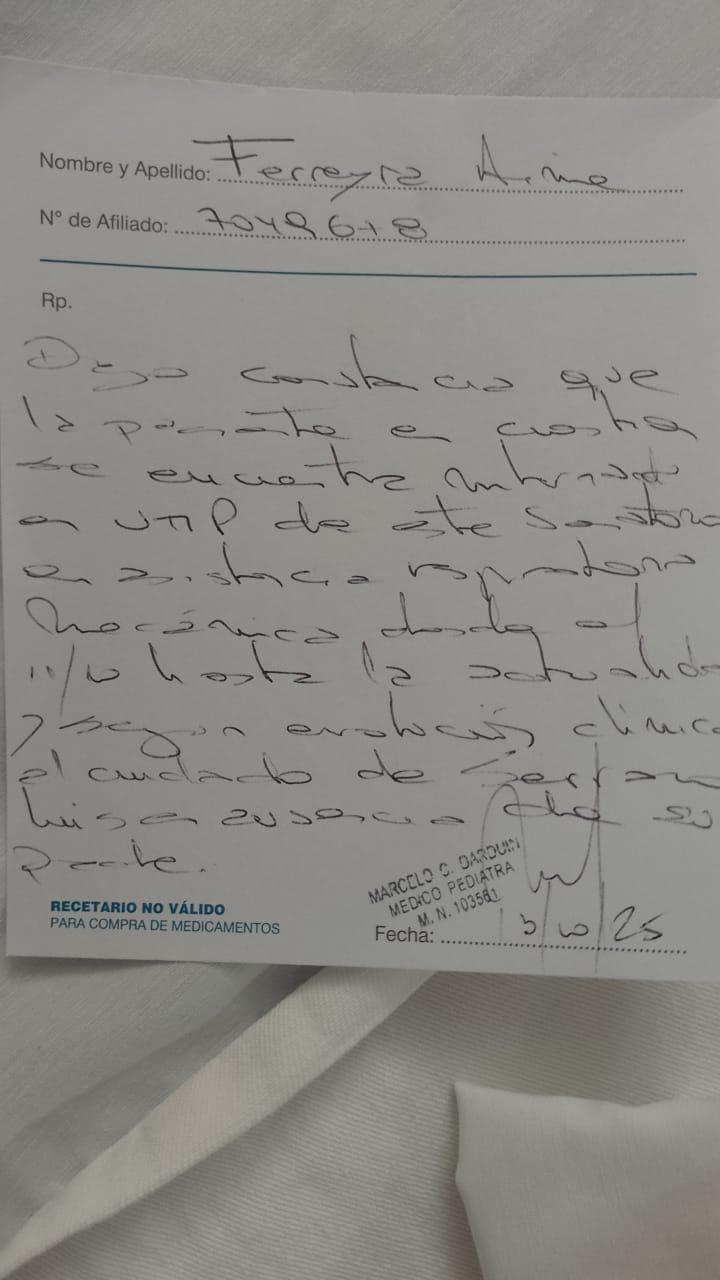 Nombre y Apellido: Ferreyra Aime
N° de Afiliado: 7049678
Rp.
Dejo constancia que
la paciente en cuestion
se encuentra internada
en UTIP de este Sanatorio
en asistencia respiratoria
Mecánica desde el
11/10 hasta la actualidad
y según evolución clínica
el cuidado de
Luis en ausencia de su
Parte.
MARCELO C. DARDUIN
MEDICO PEDIATRA
M. N. 103561
RECETARIO NO VÁLIDO
PARA COMPRA DE MEDICAMENTOS
Fecha: 13/10/25